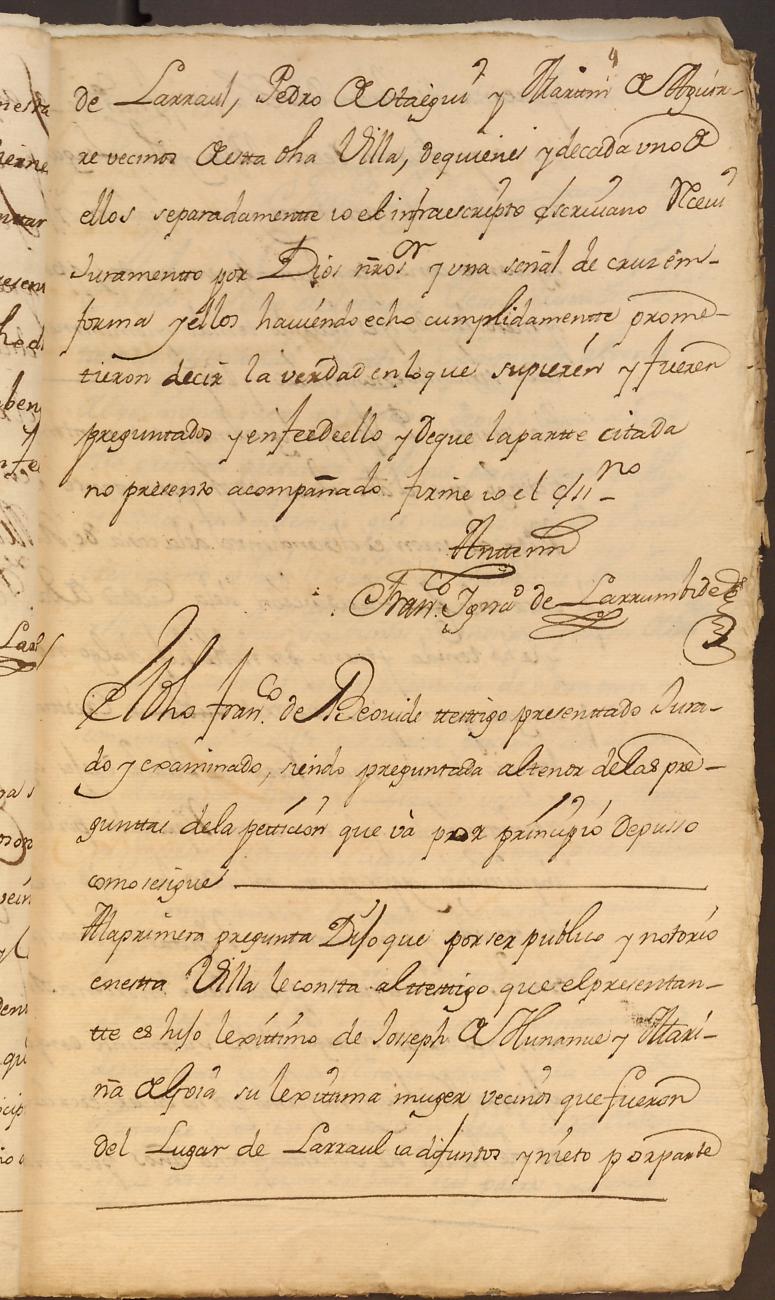 4
de Larraul, Pedro de Otaegui y Martin de Aguir-
re vecinos de esta dha Villa, de quienes y de cada uno de
ellos separadamentte io el infraescripto Escrivano Recevi
Juramentto por Dios nrõ Sr y una señal de cruz en-
forma y ellos haviendo echo cumplidamentte prome-
tieron decir la verdad en lo que supieren y fueren
preguntados y en fee de ello y de que la partte citada
no presento acompañado firme io el essno
Antte mi
Franco Ignao de Larrumbide
El dho Franco de Beovide testtigo presenttado Jura-
do y examinado, siendo preguntada al tenor de las pre-
gunttas de la peticion que và por principio depusso
como se sigue
A la primera pregunta Dijo que por ser publico y notorio
en esta Villa le consta al testtigo que el presentan-
tte es hijo lexittimo de Josseph de Munanue y Mari-
ña de Goia su lexittima muger vecinos que fueron
del Lugar de Larraul ia difuntos y nieto por parte